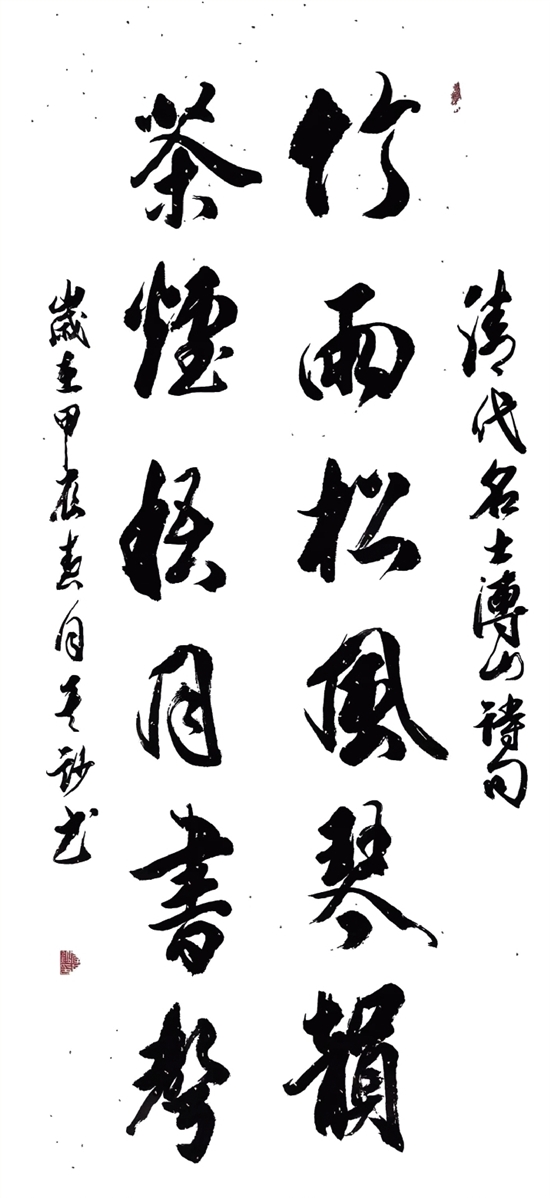 清代名士傅山詩句
竹雨松風琴韻
茶煙梧月書聲
歲在甲辰春月书